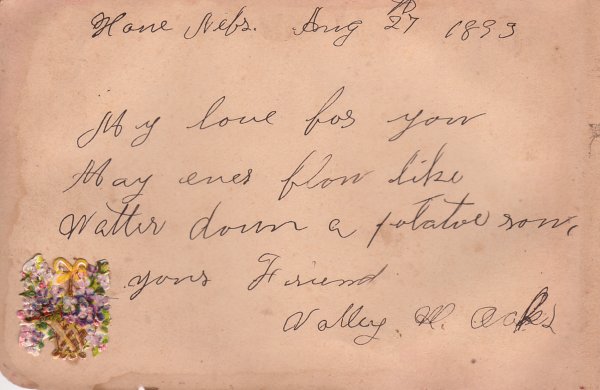 Hone Nebs. Aug 27th 1893
My love for you
May ever flow like
Watter down a potatoe row,
yours Friend
Valley M. Oaks